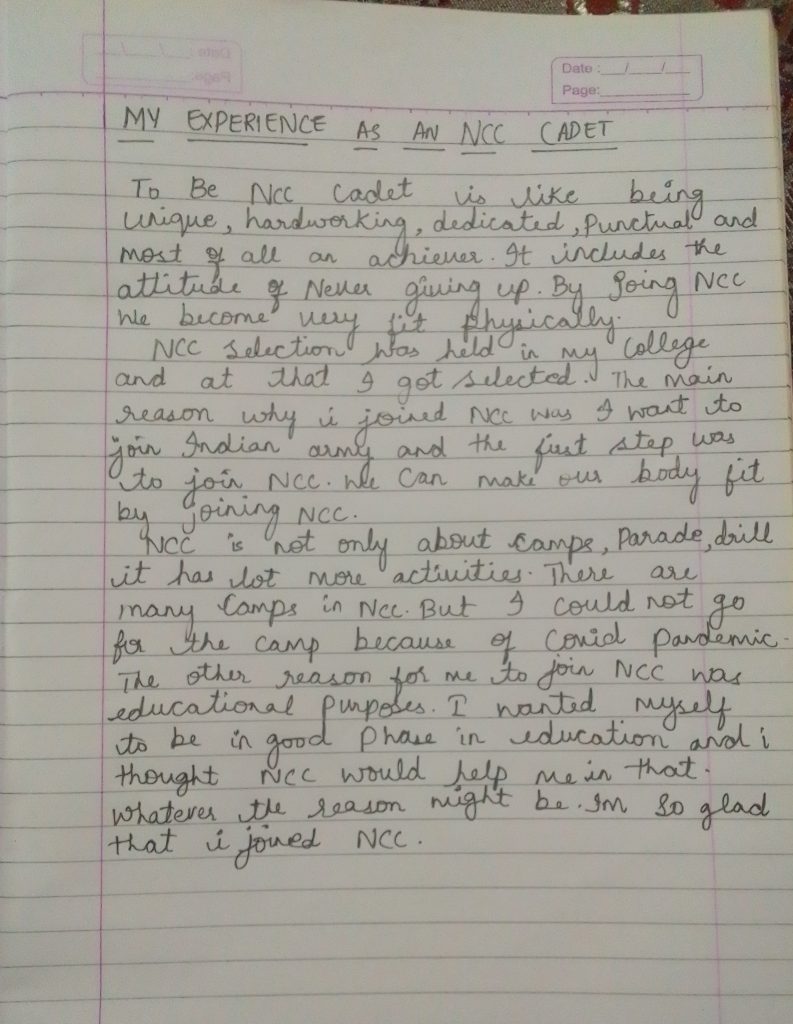 Date : __/__/__
Page: ________
MY EXPERIENCE AS AN NCC CADET
To Be NCC cadet is like being
unique, hardworking, dedicated, Punctual and
most of all an achiever. It includes the
attitude of Never giving up. By Joing NCC
We become very fit physically.
NCC selection was held in my College
and at that I got selected. The main
reason why i joined NCC was I want to
join Indian army and the first step was
to join NCC. We Can make our body fit
by joining NCC.
NCC is not only about camps, Parade, drill
it has lot more activities. There are
many Camps in NCC. But I could not go
for the camp because of Covid pandemic.
The other reason for me to join NCC was
educational purposes. I wanted myself
to be in good Phase in education and i
thought NCC would help me in that.
Whatever the reason might be. Im So glad
that i joined NCC.